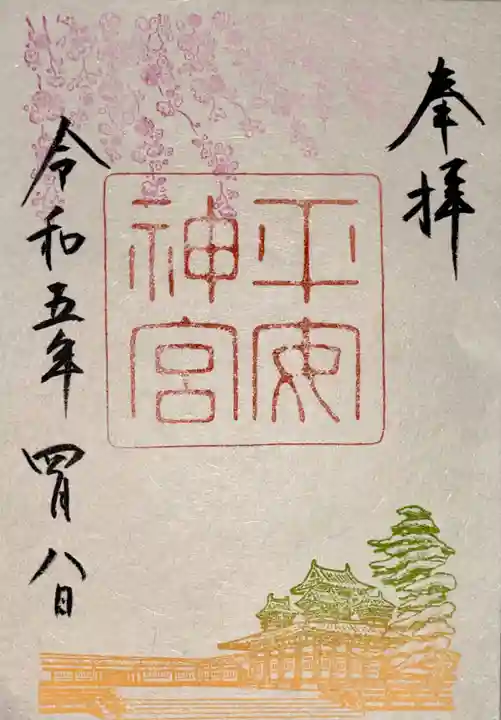 奉拝
平安
神宮
令和五年四月八日